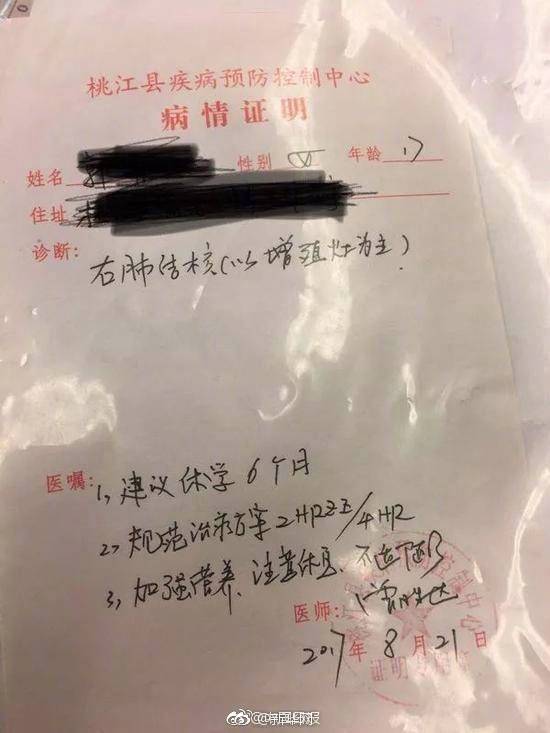 桃江县疾病预防控制中心
病情证明
姓名 性别 女 年龄 17
住址
诊断:
右肺结核(以增殖灶为主)
医嘱: 1, 建议休学6个月
2, 规范治疗方案2HRZE/4HR
3, 加强营养、注意休息、不适随诊
医师:
2017年8月21日
证明专用章